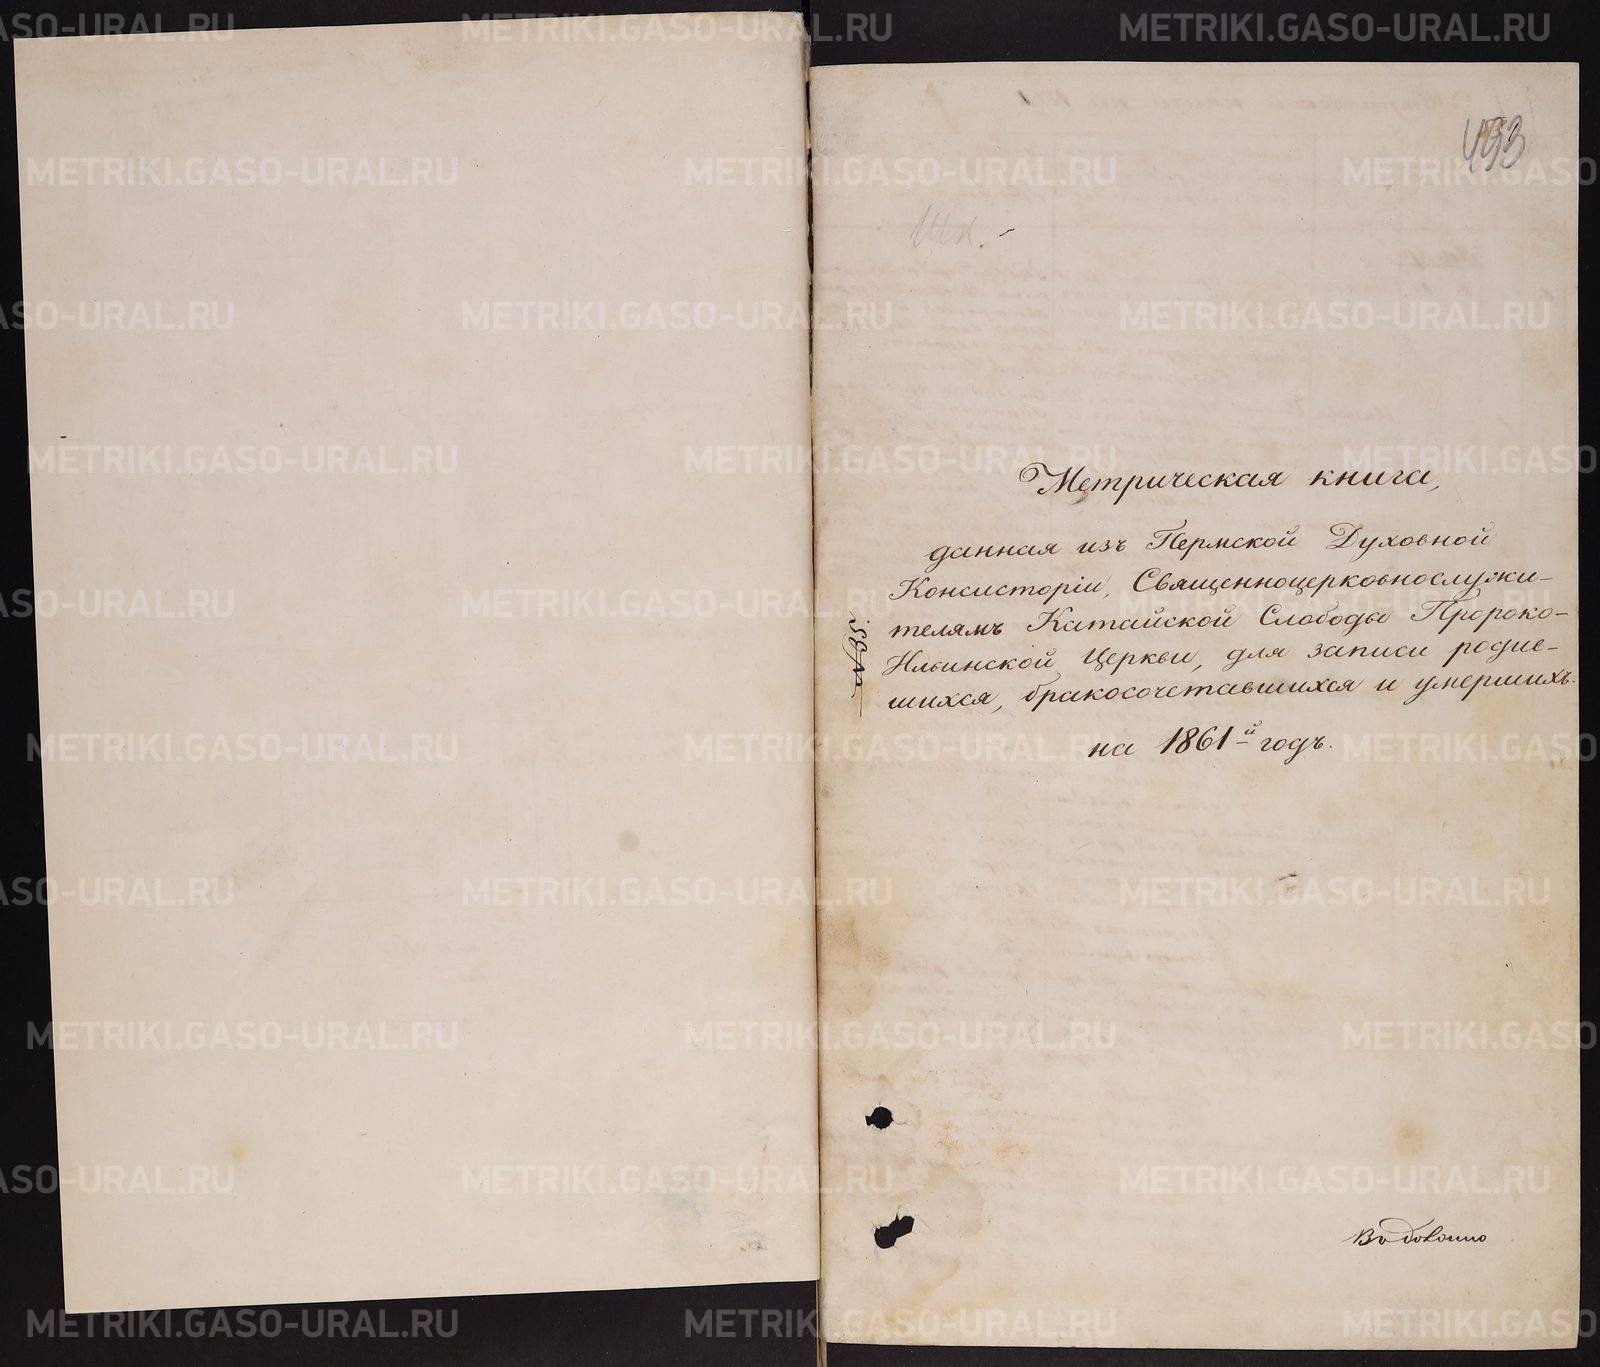 493
Метрическая книга,
данная изъ Пермской Духовной
Консисторіи, Священноцерковнослужи-
телямъ Катайской Слободы Пророко-
Ильинской Церкви, для записи родив-
шихся, бракосочетавшихся и умершихъ.
на 1861-й годъ.
METRIKI.GASO-URAL.RU